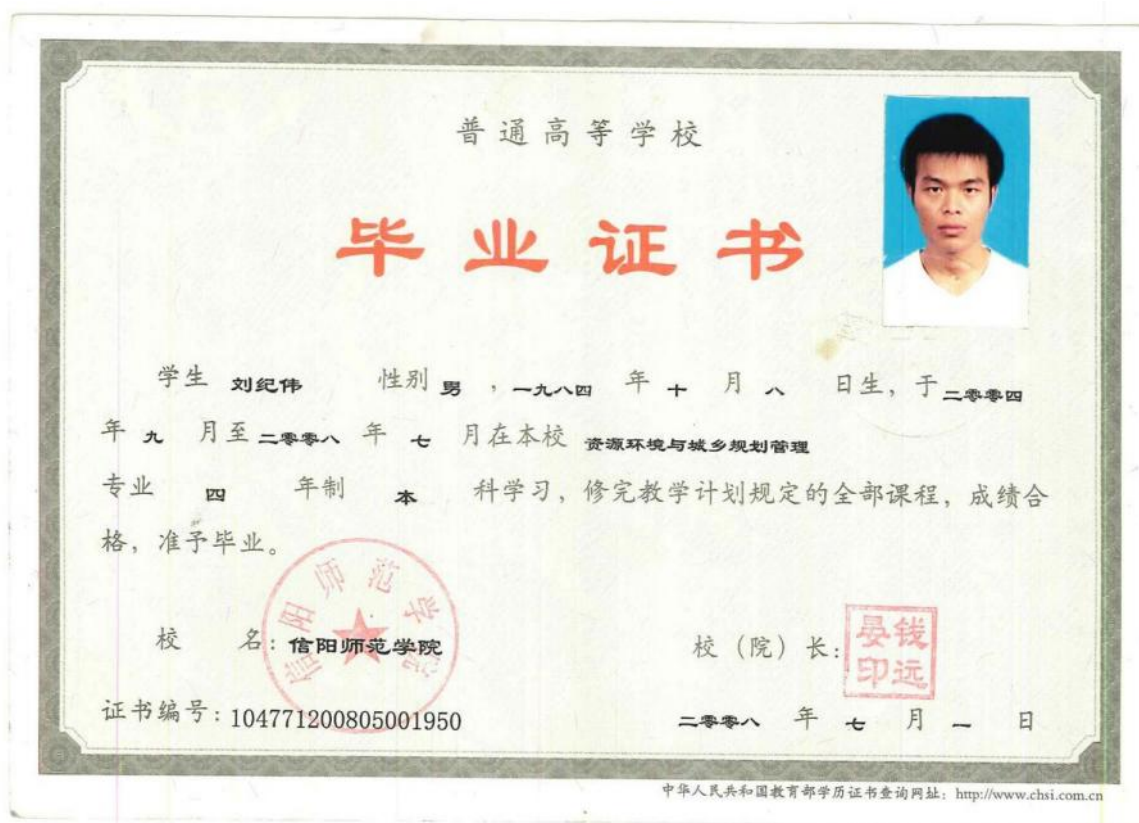 普通高等学校
毕业证书
学生 刘纪伟 性别 男 ，一九八四 年 十 月 八 日生，于 二零零四
年 九 月至 二零零八 年 七 月在本校 资源环境与城乡规划管理
专业 四 年制 本 科学习，修完教学计划规定的全部课程，成绩合
格，准予毕业。
信阳师范学院
校 名：信阳师范学院
校（院）长：
钱远
晏印
证书编号：104771200805001950
二零零八 年 七 月 一 日
中华人民共和国教育部学历证书查询网址：http://www.chsi.com.cn